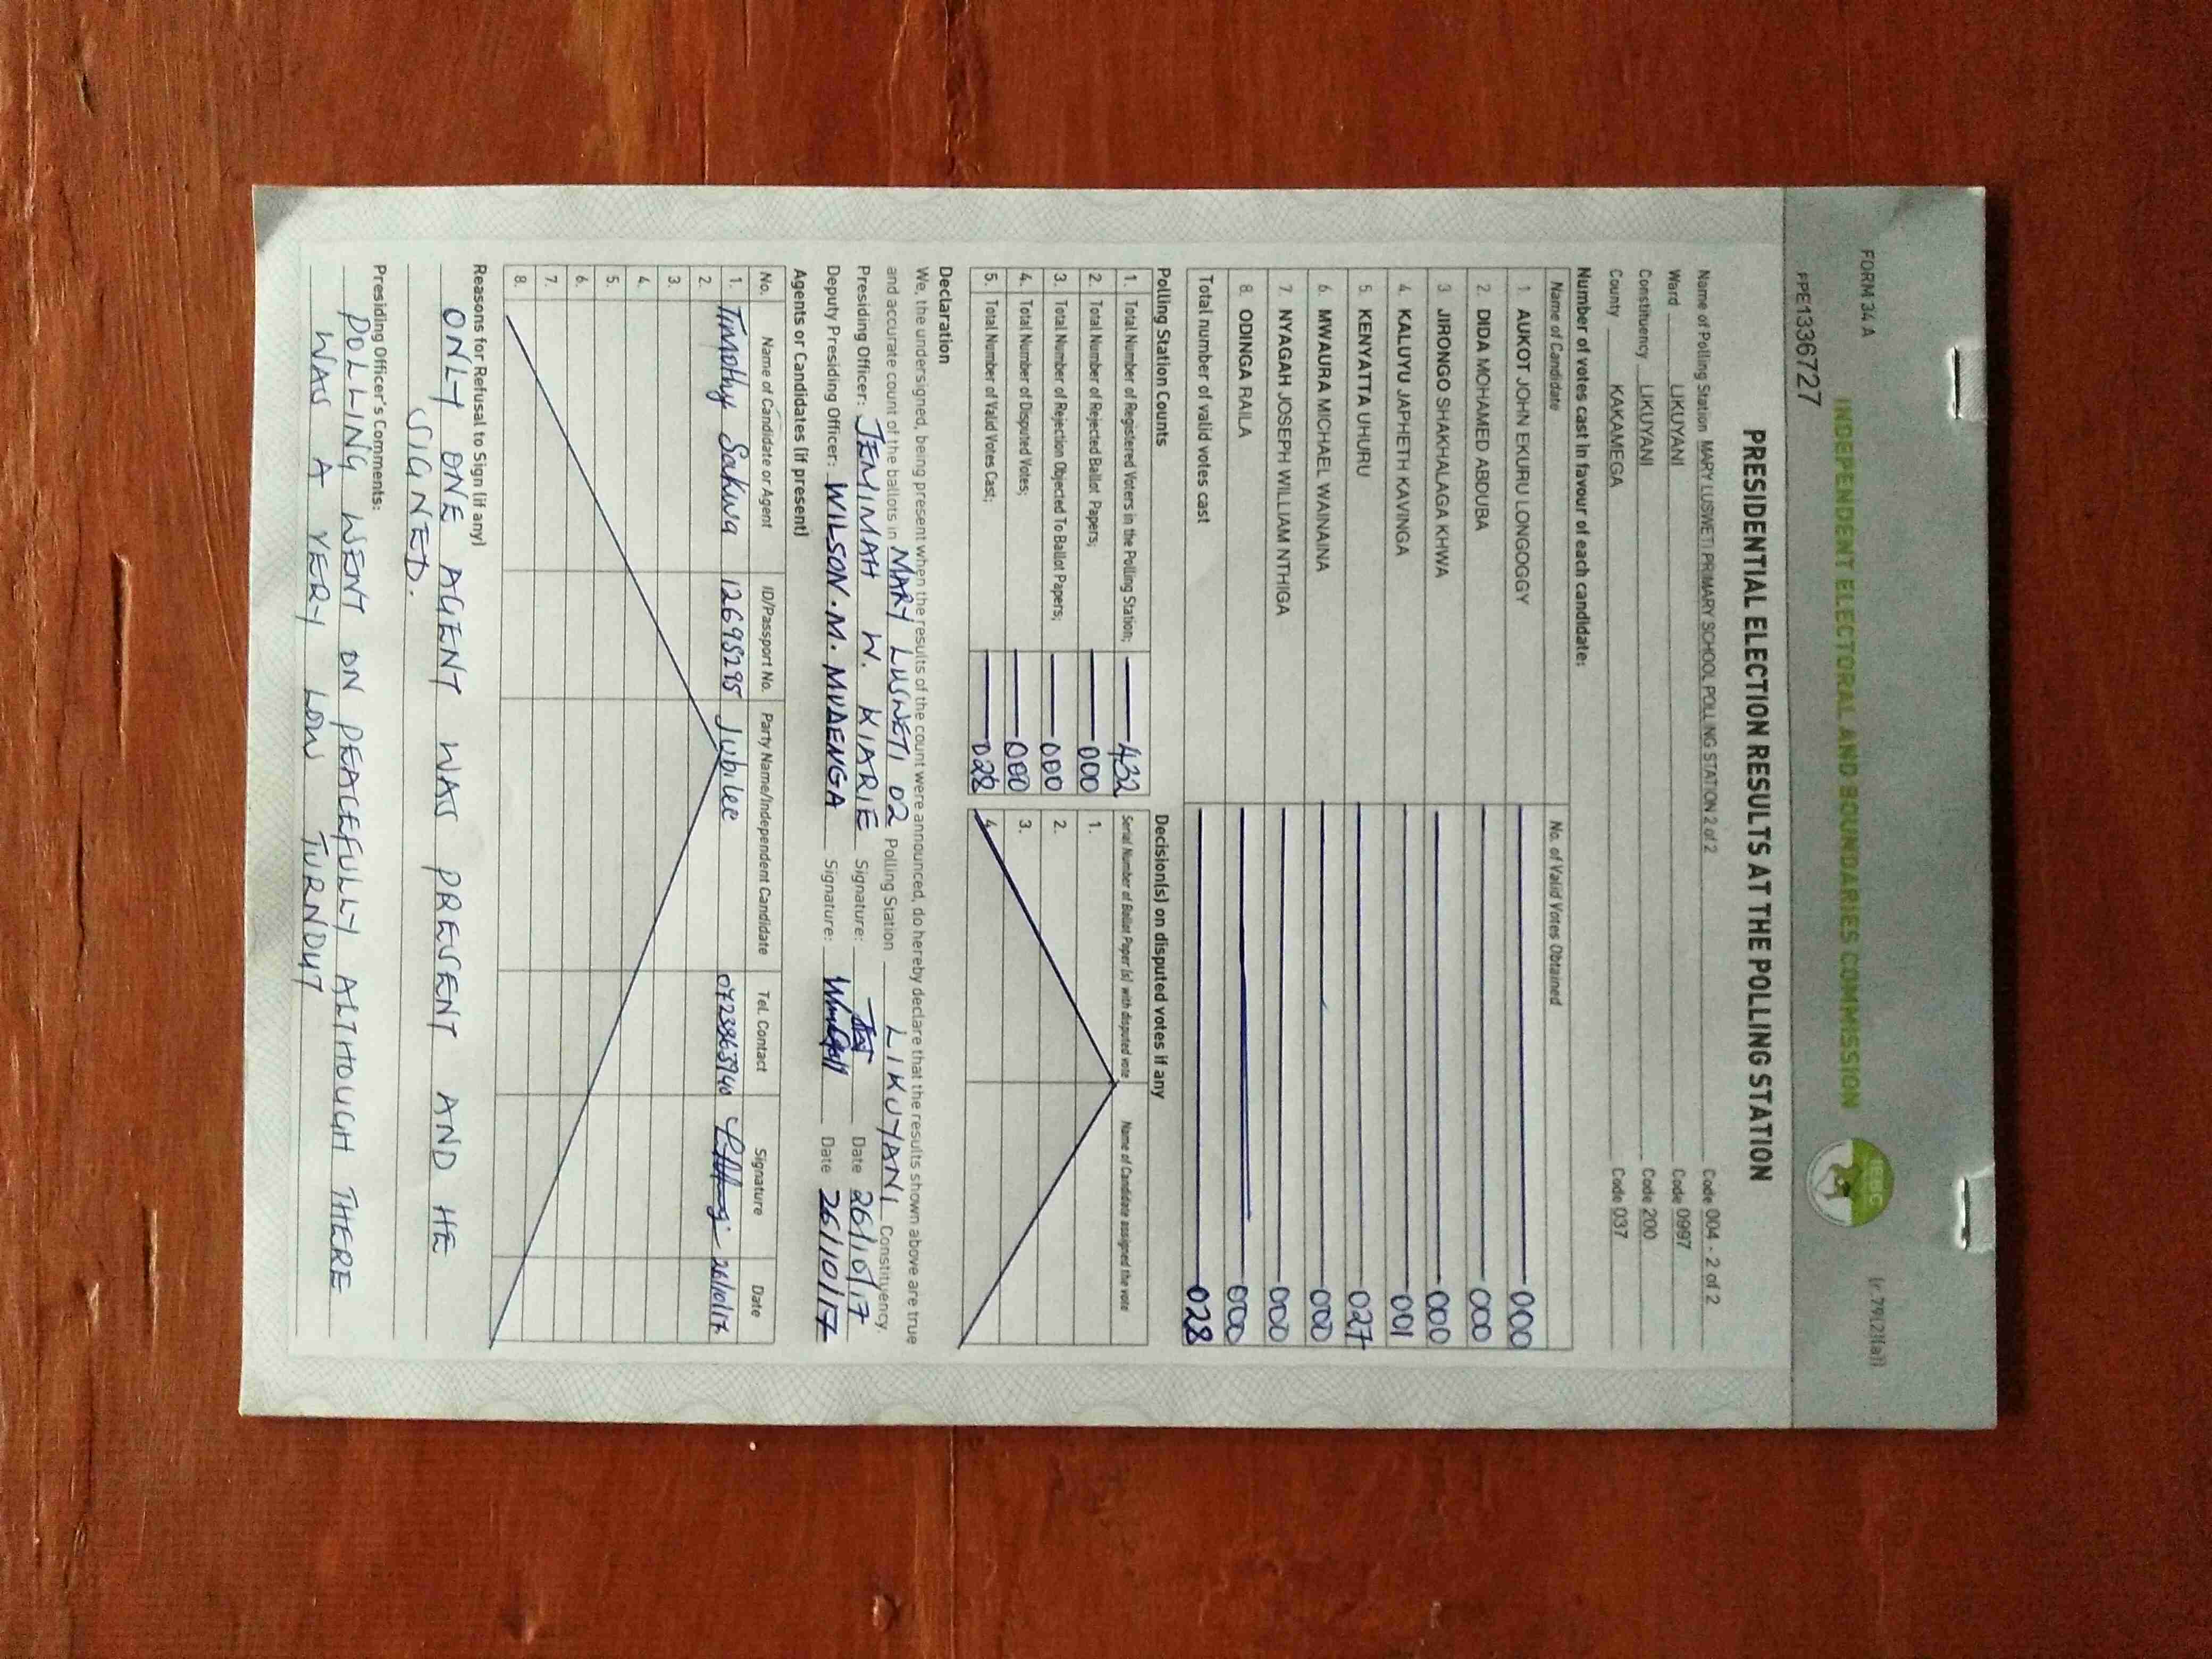 FORM 34 A
(r 79(2)(a))
INDEPENDENT ELECTORAL AND BOUNDARIES COMMISSION
IEBC
PPE1336727
PRESIDENTIAL ELECTION RESULTS AT THE POLLING STATION
Name of Polling Station MARY LUSWETI PRIMARY SCHOOL POLLING STATION 2 of 2 Code 004 - 2 of 2
Ward LIKUYANI Code 0997
Constituency LIKUYANI Code 200
County KAKAMEGA Code 037
Number of votes cast in favour of each candidate:
Name of Candidate No. of Valid Votes Obtained
1. AUKOT JOHN EKURU LONGOGGY 000
2. DIDA MOHAMED ABDUBA 000
3 JIRONGO SHAKHALAGA KHWA 000
4. KALUYU JAPHETH KAVINGA 001
5. KENYATTA UHURU 027
6. MWAURA MICHAEL WAINAINA 000
7. NYAGAH JOSEPH WILLIAM NTHIGA 000
8. ODINGA RAILA 000
Total number of valid votes cast 028
Polling Station Counts
1. Total Number of Registered Voters in the Polling Station; 432
2. Total Number of Rejected Ballot Papers; 000
3. Total Number of Rejection Objected To Ballot Papers; 000
4. Total Number of Disputed Votes; 000
5. Total Number of Valid Votes Cast; 028
Decision(s) on disputed votes if any
Serial Number of Ballot Paper (s) with disputed vote Name of Candidate assigned the vote
1.
2.
3.
4.
Declaration
We, the undersigned, being present when the results of the count were announced, do hereby declare that the results shown above are true
and accurate count of the ballots in MARY LUSWETI 02 Polling Station LIKUYANI Constituency.
Presiding Officer: JEMIMAH W. KIARIE Signature: Date 26/10/17
Deputy Presiding Officer: WILSON.M. MUAENGA Signature: Date 26/10/17
Agents or Candidates (if present)
No. Name of Candidate or Agent ID/Passport No. Party Name/Independent Candidate Tel. Contact Signature Date
1. Timothy Sakwa 12695295 Jubilee 0723863940 26/10/17
2.
3.
4.
5.
6.
7.
8.
Reasons for Refusal to Sign (if any)
ONLY ONE AGENT WAS PRESENT AND HE
SIGNED.
Presiding Officer's Comments:
POLLING WENT ON PEACEFULLY ALTHOUGH THERE
WAS A VERY LOW TURNOUT